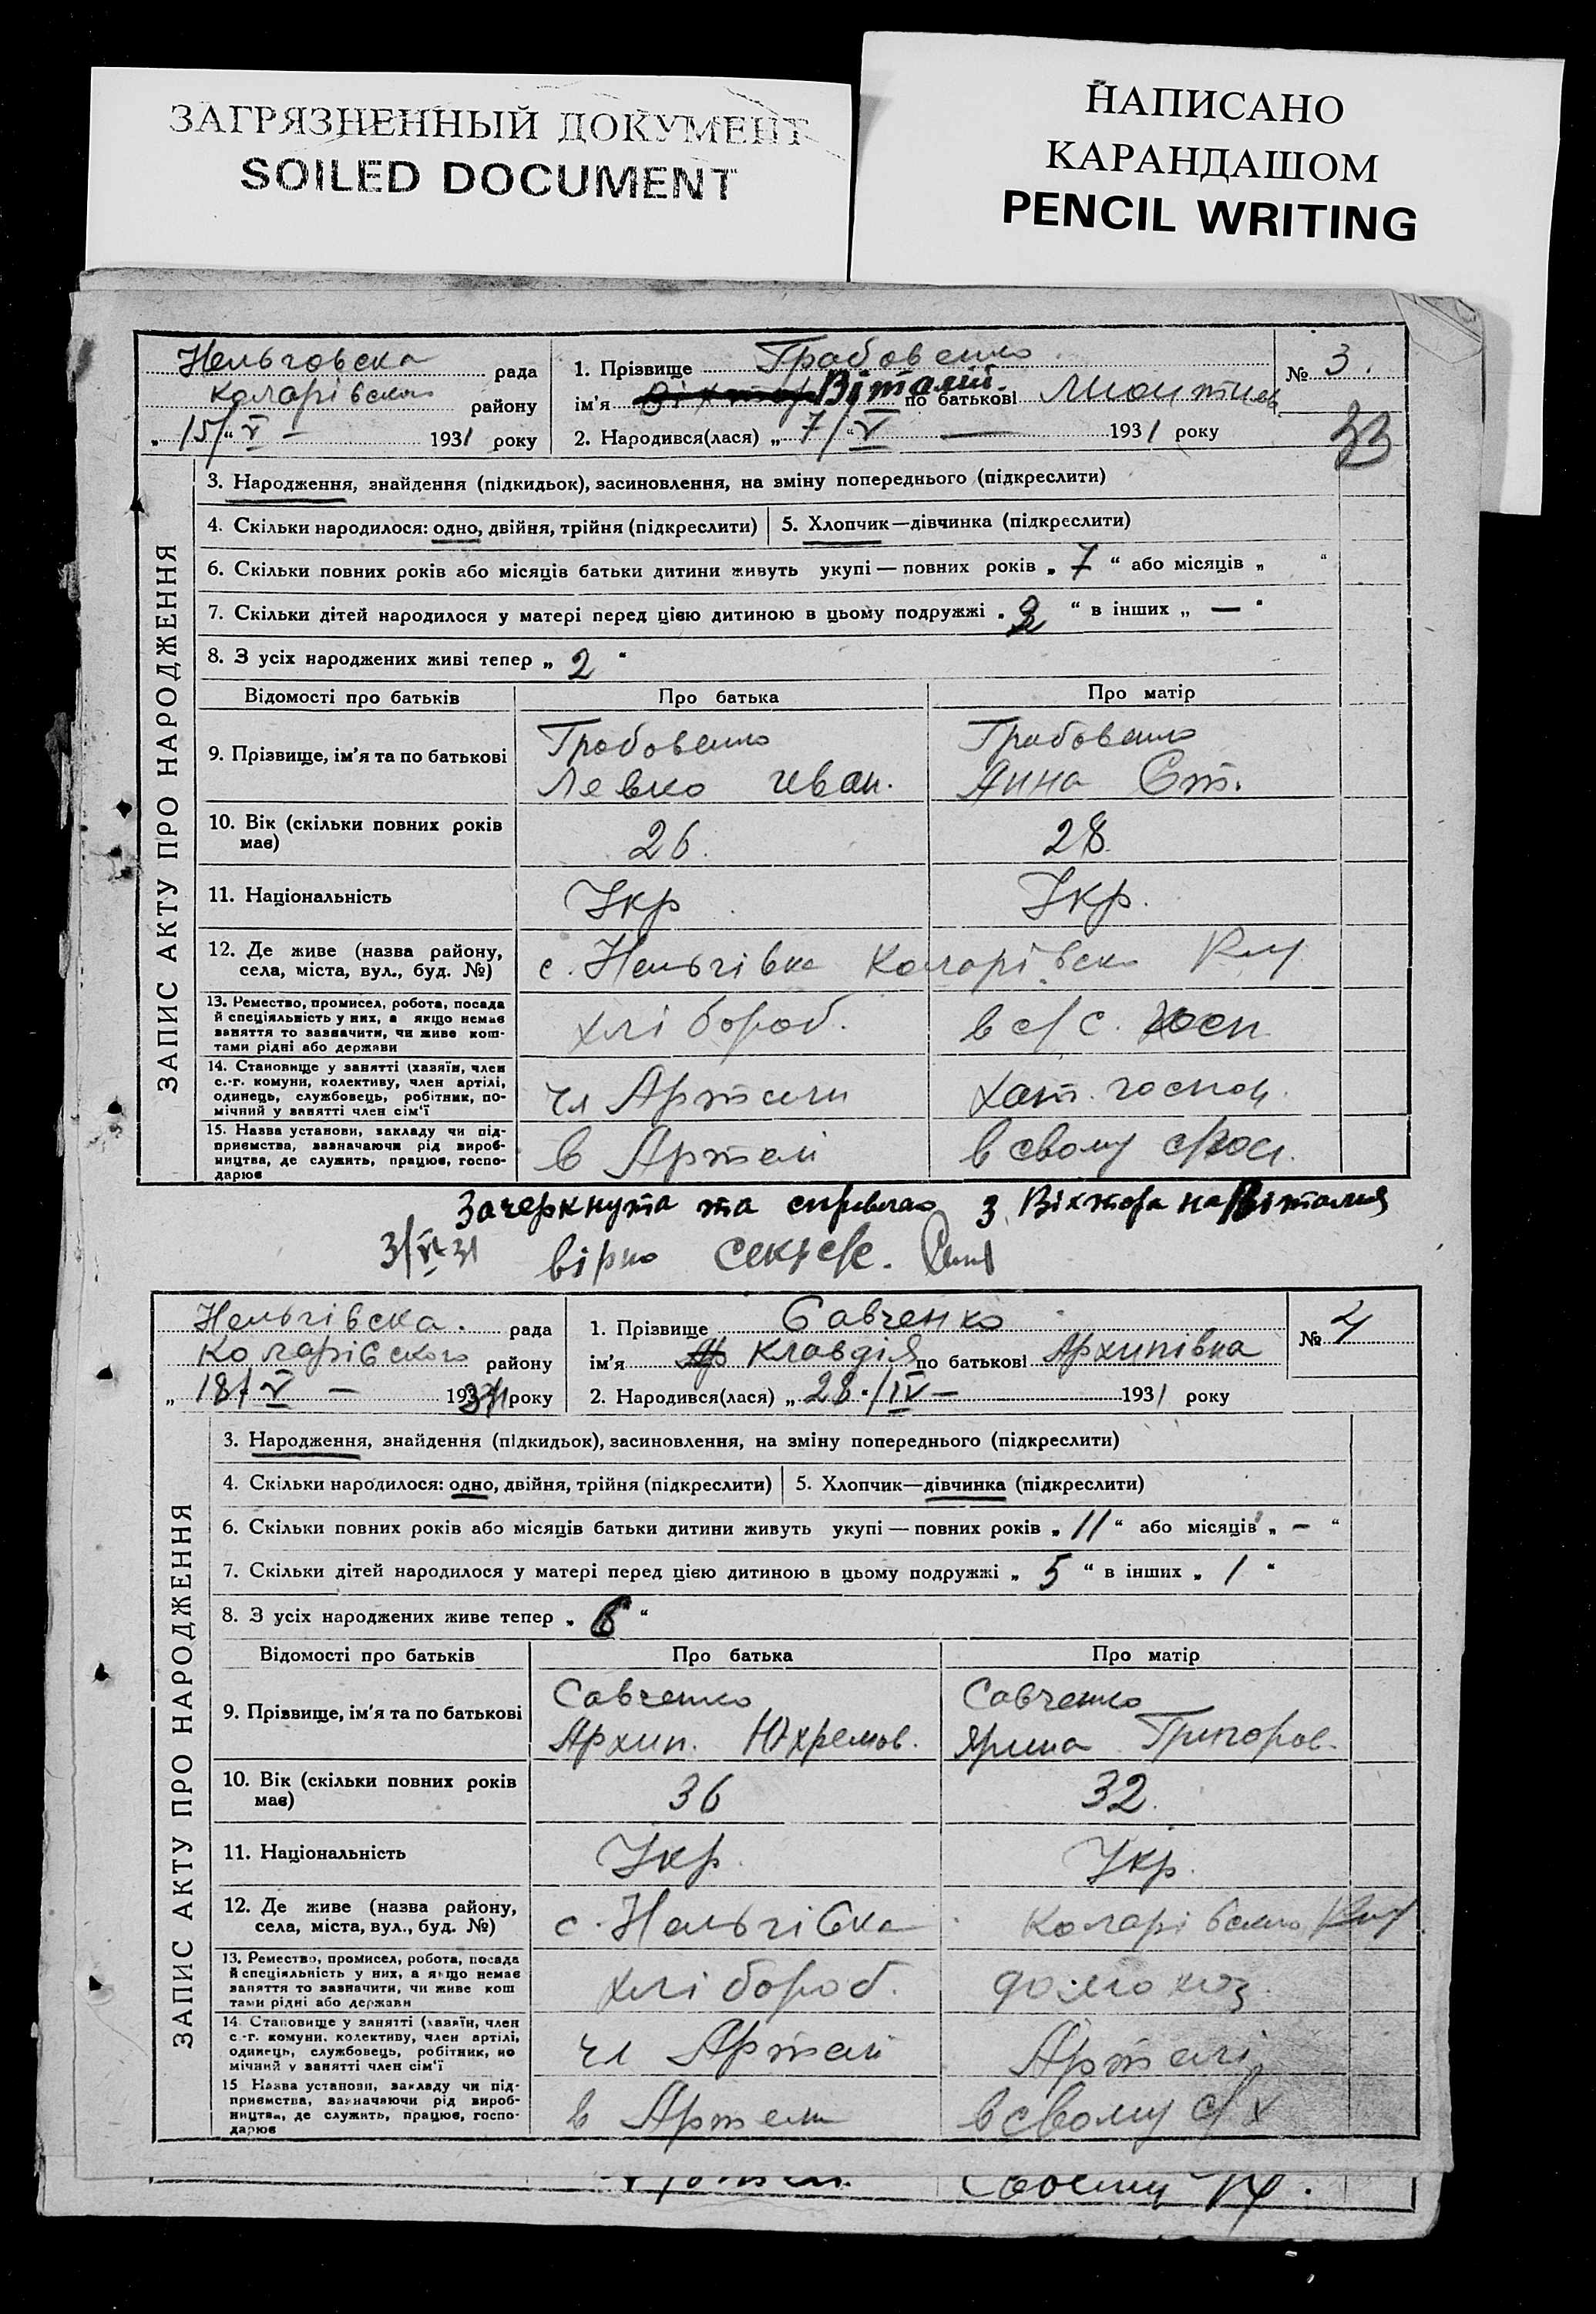 ЗАГРЯЗНЕННЫЙ ДОКУМЕНТ
SOILED DOCUMENT
НАПИСАНО
КАРАНДАШОМ
PENCIL WRITING
ЗАПИС АКТУ ПРО НАРОДЖЕННЯ
Нельговска рада
Коларівского району
„ 15/“ V — 1931 року
1. Прізвище Грабовенко
ім'я Віктор Віталій. по батькові
2. Народився(лася) „ 7/“ V — 1931 року
№ 3.
33
3. Народження, знайдення (підкидьок), засиновлення, на зміну попереднього (підкреслити)
4. Скільки народилося: одно, двійня, трійня (підкреслити) 5. Хлопчик—дівчинка (підкреслити)
6. Скільки повних років або місяців батьки дитини живуть укупі — повних років „ 7 “ або місяців „ “
7. Скільки дітей народилося у матері перед цією дитиною в цьому подружжі „ “ в інших „ — “
8. З усіх народжених живі тепер „ 2 “
Відомості про батьків Про батька Про матір
9. Прізвище, ім'я та по батькові
Грабовенко Грабовенко
Левко Иван. Анна Ст.
10. Вік (скільки повних років має) 26. 28
11. Національність Укр Укр.
12. Де живе (назва району, села, міста, вул., буд. №) с. Нельгівка Коларівско
13. Ремество, промисел, робота, посада
й спеціяльність у них, а якщо немає
заняття то зазначити, чи живе кош-
тами рідні або держави
хлібороб. в с/с.
14. Становище у занятті (хазяїн, член
с.-г. комуни, колективу, член артілі,
одинець, службовець, робітник, по-
мічний у занятті член сім'ї
чл Артели хат. господ.
15. Назва установи, закладу чи під-
приємства, зазначаючи рід вироб-
ництва, де служить, працює, госпо-
дарює
в Артелі в свому
Зачеркнута та справлено з Віктора на Віталия
31/V 31 вірно секр с/с.
ЗАПИС АКТУ ПРО НАРОДЖЕННЯ
Нельгівска. рада
Коларівского району
„ 18/ V — 1931 року
1. Прізвище Савченко
ім'я Клавдія по батькові Архипівна
2. Народився(лася) „ 28 “/IV — 1931 року
№ 4
3. Народження, знайдення (підкидьок), засиновлення, на зміну попереднього (підкреслити)
4. Скільки народилося: одно, двійня, трійня (підкреслити) 5. Хлопчик—дівчинка (підкреслити)
6. Скільки повних років або місяців батьки дитини живуть укупі — повних років „ 11 “ або місяців „ — “
7. Скільки дітей народилося у матері перед цією дитиною в цьому подружжі „ 5 “ в інших „ 1 “
8. З усіх народжених живе тепер „ 6 “
Відомості про батьків Про батька Про матір
9. Прізвище, ім'я та по батькові
Савченко Савченко
Архип. Юхремов. Ярина Григоров.
10. Вік (скільки повних років має) 36 32.
11. Національність Укр. Укр.
12. Де живе (назва району, села, міста, вул., буд. №) с. Нельгівка Коларівского
13. Ремество, промисел, робота, посада
й спеціяльність у них, а якщо немає
заняття то зазначити, чи живе кош
тами рідні або держави
хлібороб.
14. Становище у занятті (хазяїн, член
с.-г. комуни, колективу, член артілі,
одинець, службовець, робітник, по
мічний у занятті член сім'ї
чл Артелі Артелі
15 Назва установи, закладу чи під-
приємства, зазначаючи рід вироб-
ництва, де служить, працює, госпо-
дарює
в Артели в свому с/х